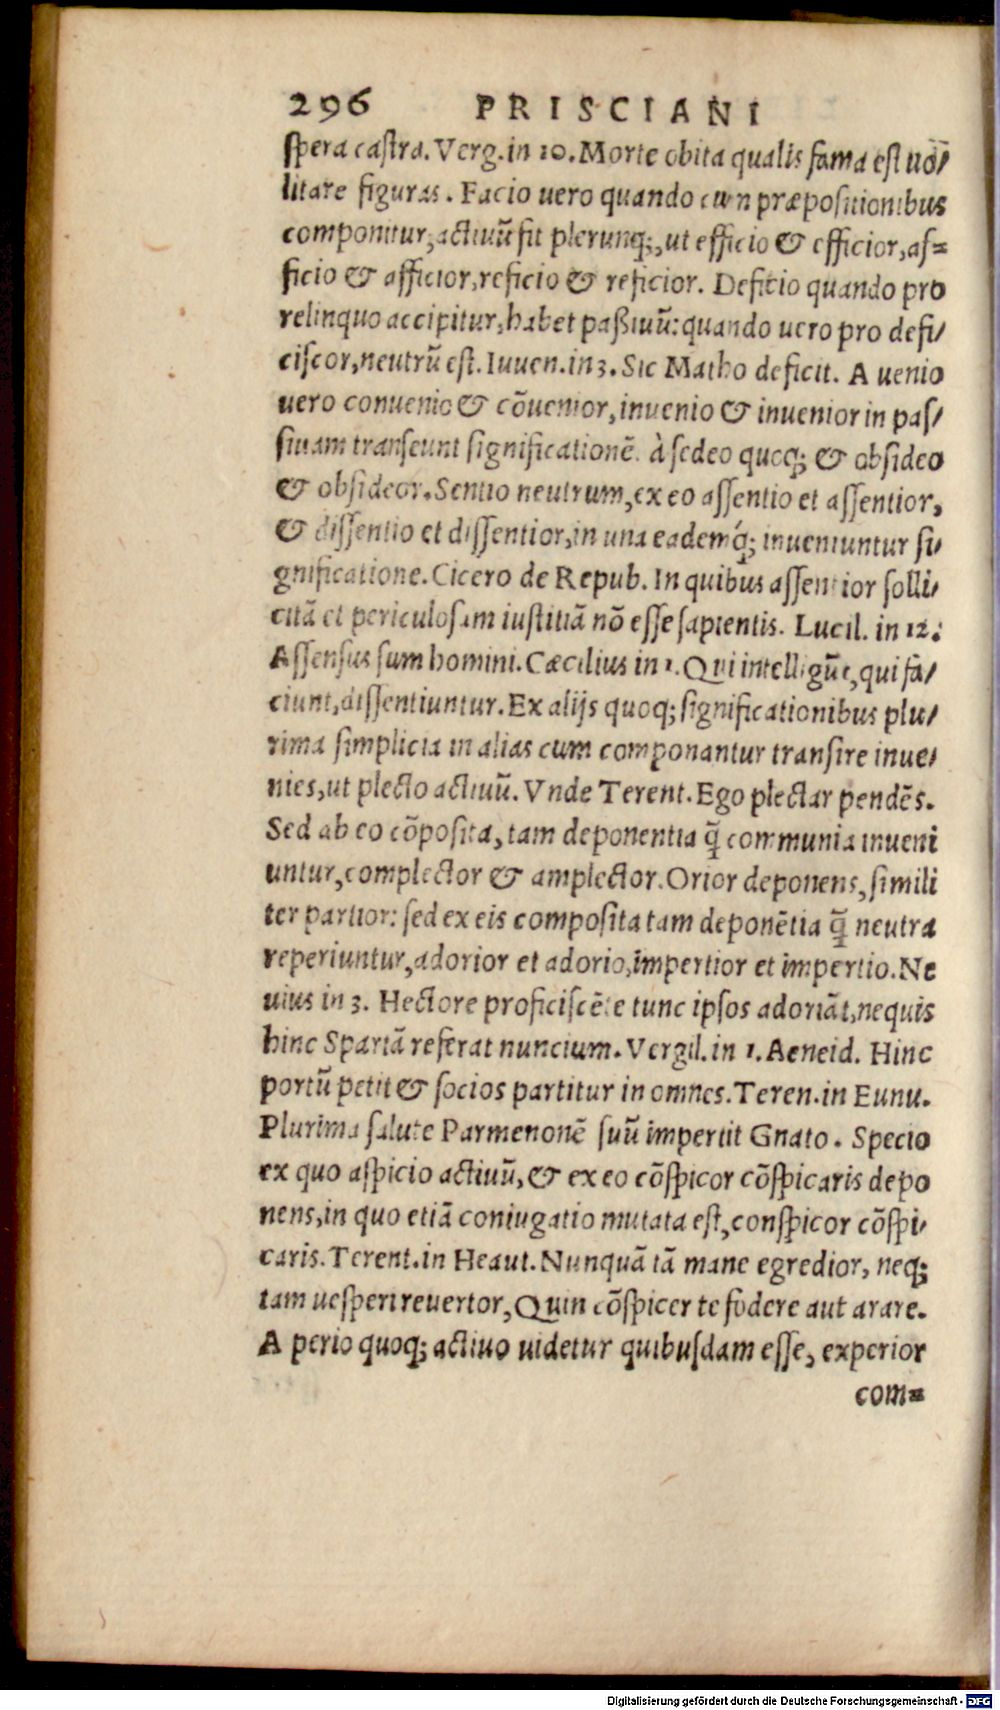 296 PRISCIANI
spera castra. Verg. in 10. Morte obita qualis fama est uo/
litare figuras. Facio uero quando cum præpositionibus
componitur, actiuũ fit plerunq;, ut efficio & efficior, af=
ficio & afficior, reficio & reficior. Deficio quando pro
relinquo accipitur, habet paßiuũ: quando uero pro defi/
ciscor, neutrũ est. Iuuen. in 3. Sic Matho deficit. A uenio
uero conuenio & cõuenior, inuenio & inuenior in pas/
siuam transeunt significationẽ. à sedeo quoq; & obsideo
& obsideor. Sentio neutrum, ex eo assentio et assentior,
& dissentio et dissentior, in una eademq́; inueniuntur si/
gnificatione. Cicero de Repub. In quibus assentior solli/
citã et periculosam iustitiã nõ esse sapientis. Lucil. in 12:
Assensus sum homini. Cæcilius in 1. Qui intelligũt, qui fa/
ciunt, dissentiuntur. Ex alijs quoq; significationibus plu/
rima simplicia in alias cum componantur transire inue/
nies, ut plecto actiuũ. Vnde Terent. Ego plectar pendẽs.
Sed ab eo cõposita, tam deponentia q̃ communia inueni
untur, complector & amplector. Orior deponens, simili
ter partior: sed ex eis composita tam deponẽtia q̃ neutra
reperiuntur, adorior et adorio, impertior et impertio. Ne
uius in 3. Hectore proficiscẽte tunc ipsos adoriãt, nequis
hinc Spartã referat nuncium. Vergil. in 1. Aeneid. Hinc
portũ petit & socios partitur in omnes. Teren. in Eunu.
Plurima salute Parmenonẽ suũ impertit Gnato. Specio
ex quo aspicio actiuũ, & ex eo cõspicor cõspicaris depo
nens, in quo etiã coniugatio mutata est, conspicor cõspi/
caris. Terent. in Heaut. Nunquã tã mane egredior, neq;
tam uesperi reuertor, Quin cõspicer te fodere aut arare.
A perio quoq; actiuo uidetur quibusdam esse, experior
com=
Digitalisierung gefördert durch die Deutsche Forschungsgemeinschaft - DFG